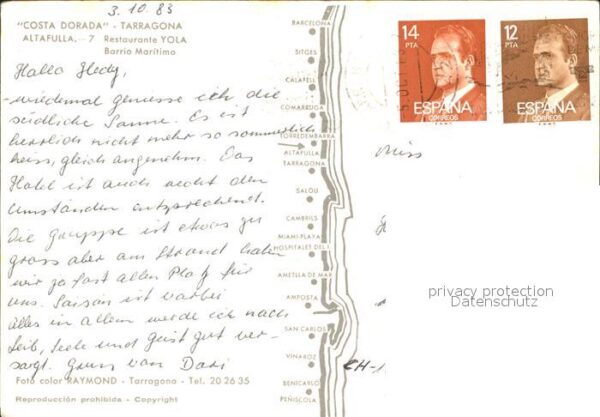 3.10.83
"COSTA DORADA" - TARRAGONA
ALTAFULLA. - 7 Restaurante YOLA
Barrio Marítimo
Hallo Hedy,
wiedermal geniesse ich die
südliche Sonne. Es ist
herrlich nicht mehr so sommerlich
heiss, gleich angenehm. Das
Hotel ist auch recht den
Umständen entsprechend.
Die Gruppe ist etwas zu
gross aber am Strand haben
wir ja fast allen Platz für
uns. Saison ist vorbei
Alles in allem werde ich nach
Leib, Seele und Geist gut ver-
sorgt. Gruss von Dori
Foto color RAYMOND - Tarragona - Tel. 20 26 35
Reproducción prohibida - Copyright
BARCELONA
SITGES
CALAFELL
COMARRUGA
TORREDEMBARRA
ALTAFULLA
TARRAGONA
SALOU
CAMBRILS
MIAMI-PLAYA
HOSPITALET DEL I.
AMETLLA DE MAR
AMPOSTA
SAN CARLOS
VINAROZ
BENICARLO
PEÑISCOLA
14
PTA
ESPAÑA
CORREOS
12
PTA
ESPAÑA
CORREOS
Miss
privacy protection
Datenschutz
CH-